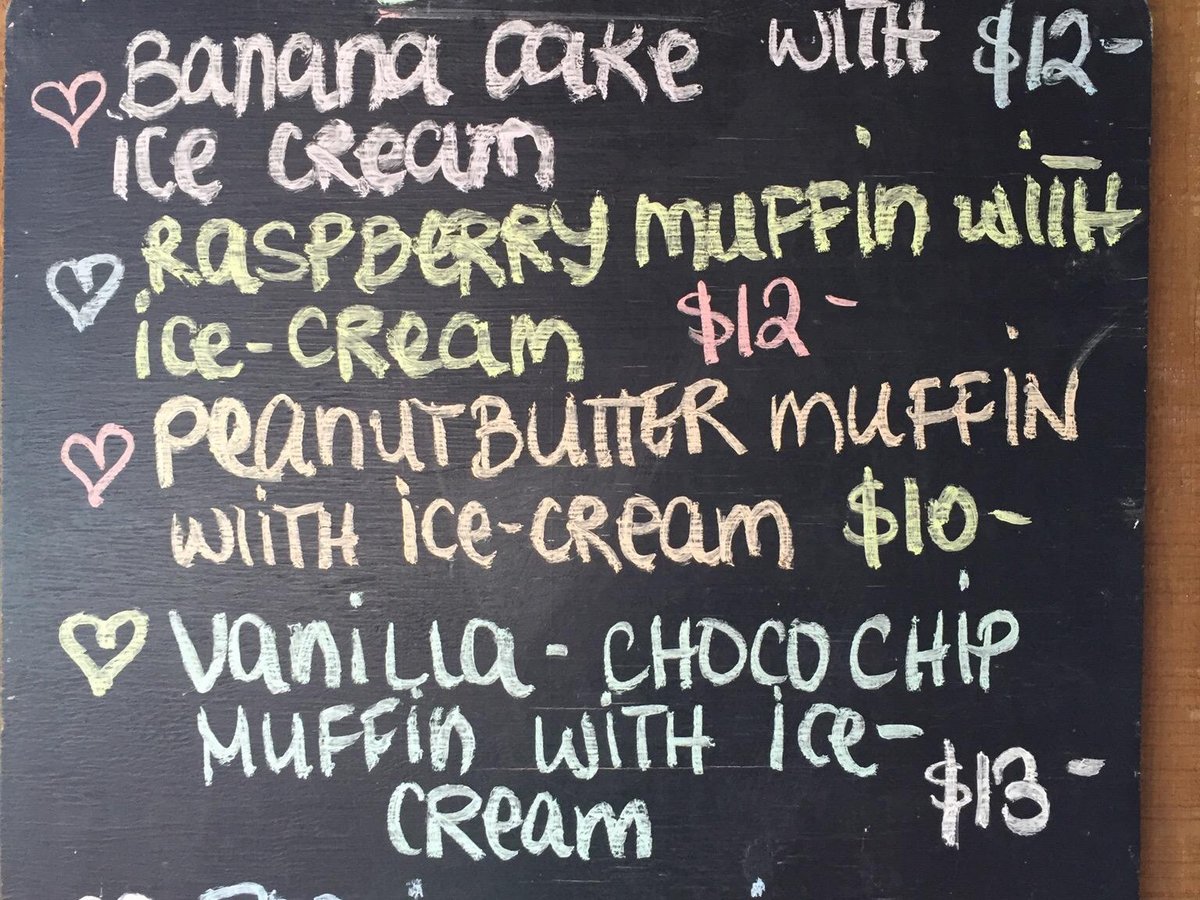 Banana cake with $12-
ice cream
Raspberry muffin with
ice-cream $12-
PeanutButter muffin
with ice-cream $10-
Vanilla - choco chip
muffin with ice-
cream $13-